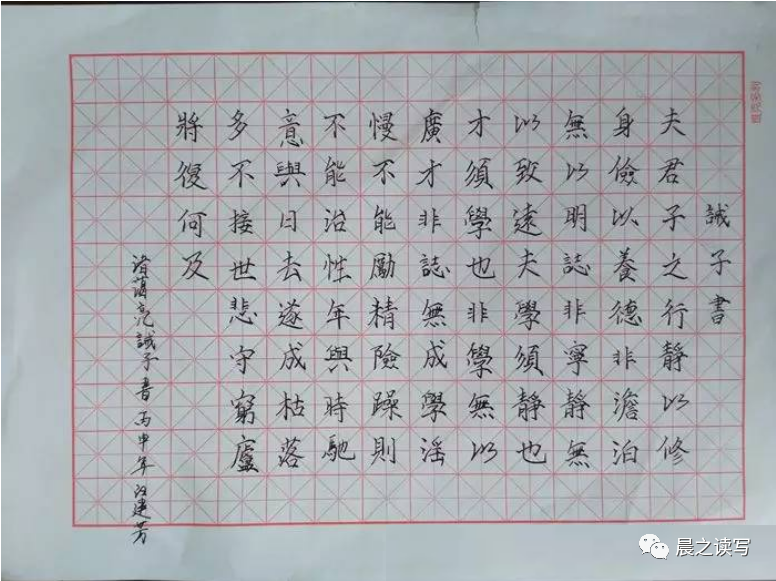 誡子書
夫君子之行靜以修
身儉以養德非澹泊
無以明誌非寧靜無
以致遠夫學須靜也
才須學也非學無以
廣才非誌無成學滛
慢不能勵精險躁則
不能治性年與時馳
意與日去遂成枯落
多不接世悲守窮廬
將復何及
諸葛亮誡子書丙申年建芳
晨之读写